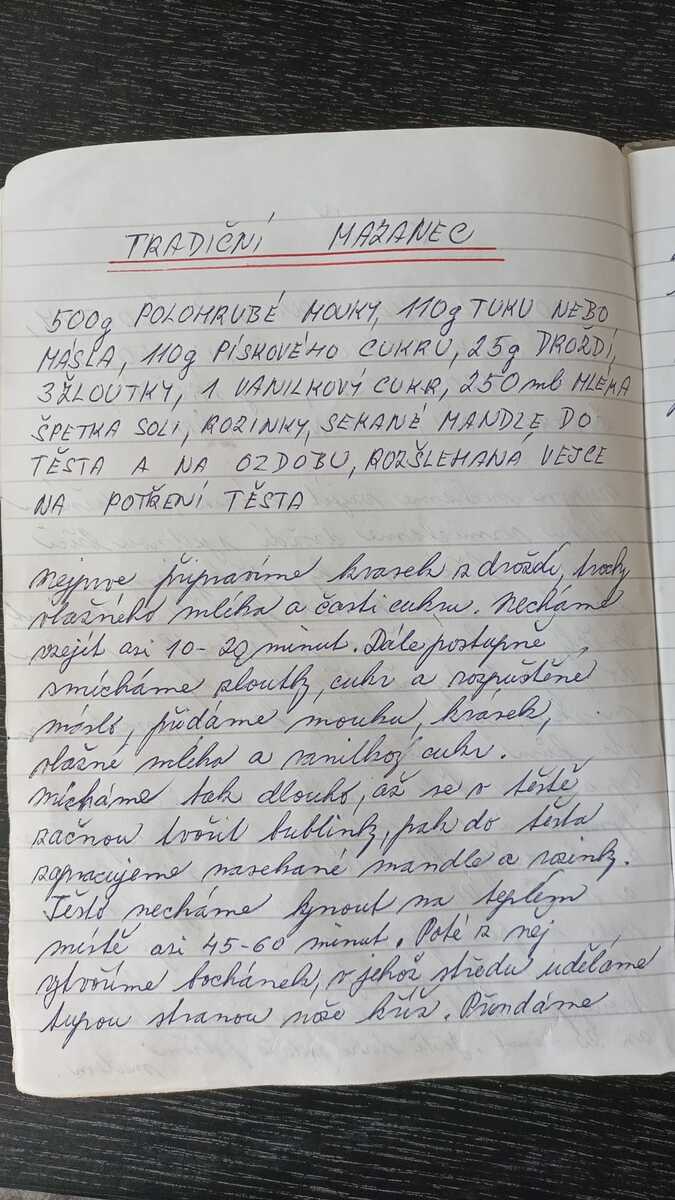 TRADIČNÍ MAZANEC
500g POLOHRUBÉ MOUKY, 110g TUKU NEBO
MÁSLA, 110g PÍSKOVÉHO CUKRU, 25g DROŽDÍ,
3 ŽLOUTKY, 1 VANILKOVÝ CUKR, 250 ml MLÉKA
ŠPETKA SOLI, ROZINKY, SEKANÉ MANDLE DO
TĚSTA A NA OZDOBU, ROZŠLEHANÁ VEJCE
NA POTŘENÍ TĚSTA
Nejprve připravíme kvasek z droždí, trochy
vlažného mléka a části cukru. Necháme
vzejít asi 10-20 minut. Dále postupně
smícháme žloutky, cukr a rozpuštěné
máslo, přidáme mouku, kvásek,
vlažné mléko a vanilkový cukr.
Mícháme tak dlouho, až se v těstě
začnou tvořit bublinky, pak do těsta
zapracujeme nasekané mandle a rozinky.
Těsto necháme kynout na teplém
místě asi 45-60 minut. Poté z něj
vytvoříme bochánek, v jehož středu uděláme
tupou stranou nože kříž. Přendáme